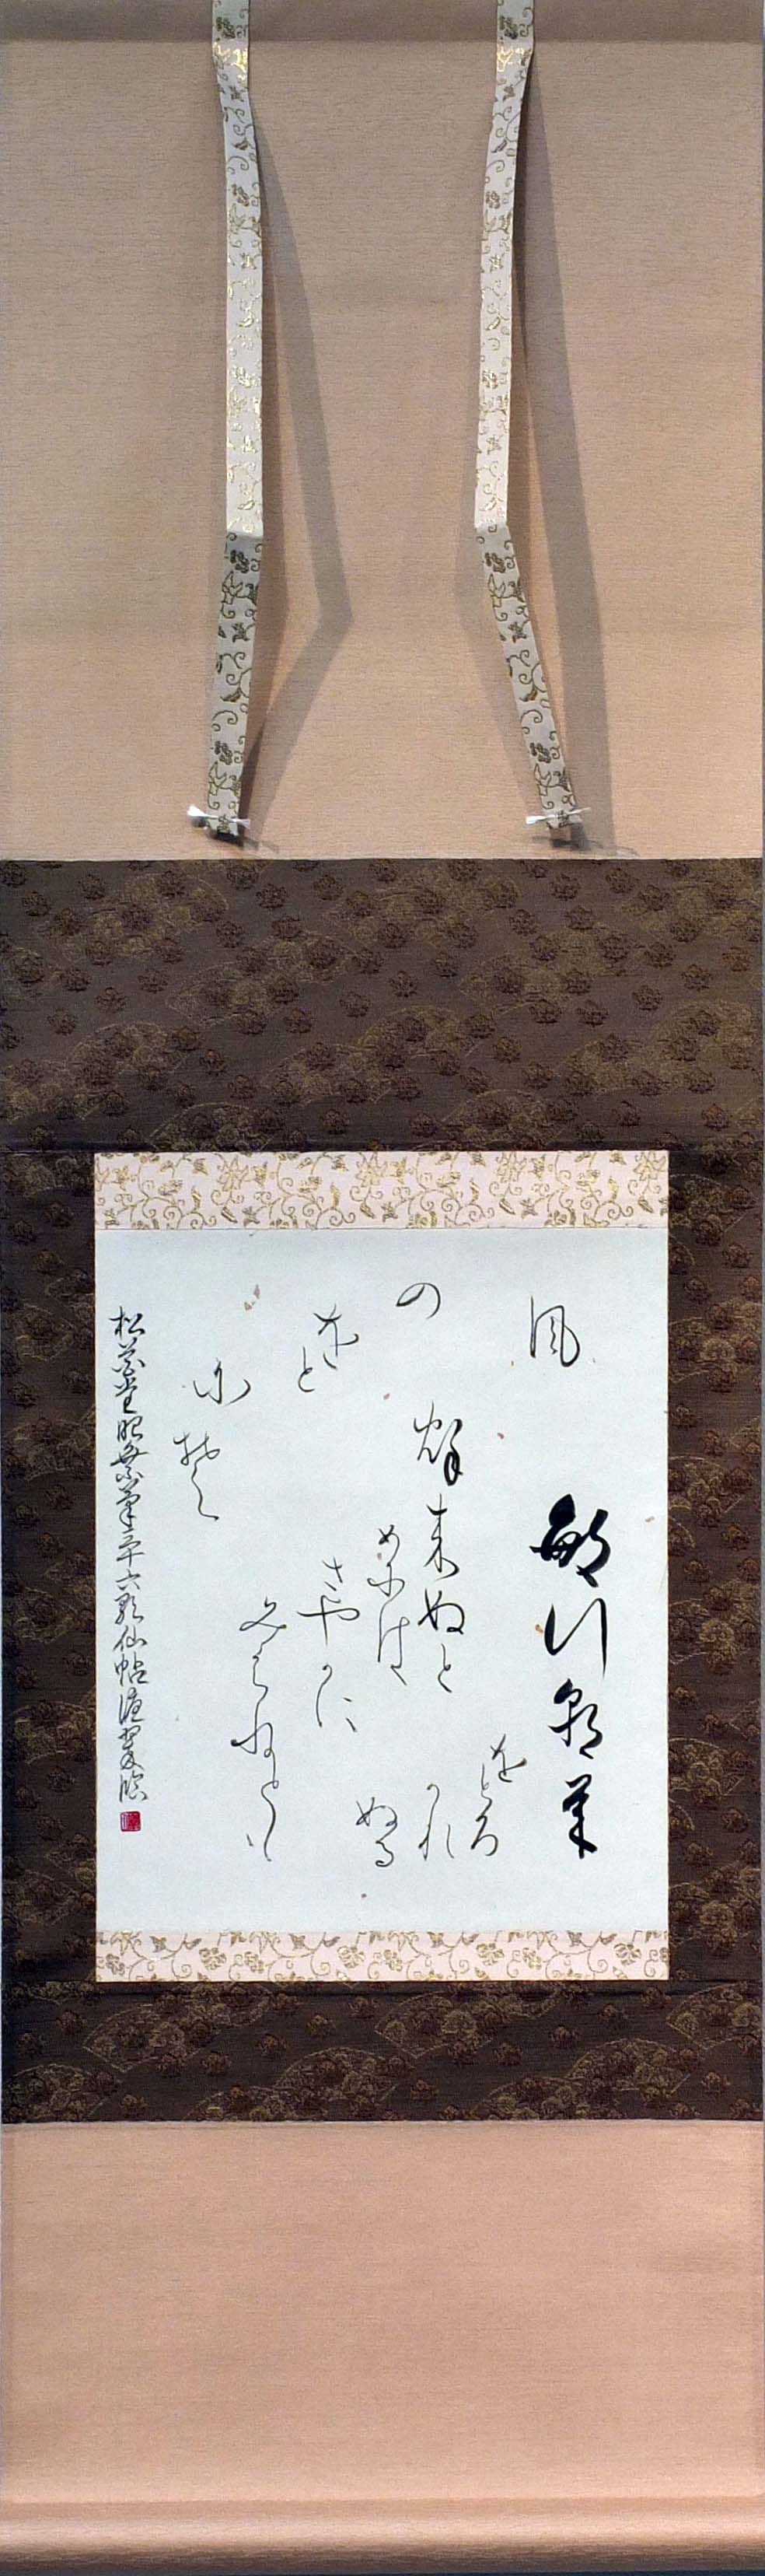 敏行朝臣
秋来ぬと
めには
さやかに
みえねとも
風
の
をと
にそ
をとろ
かれ
ぬる
松花堂昭乗筆三十六歌仙帖 臨